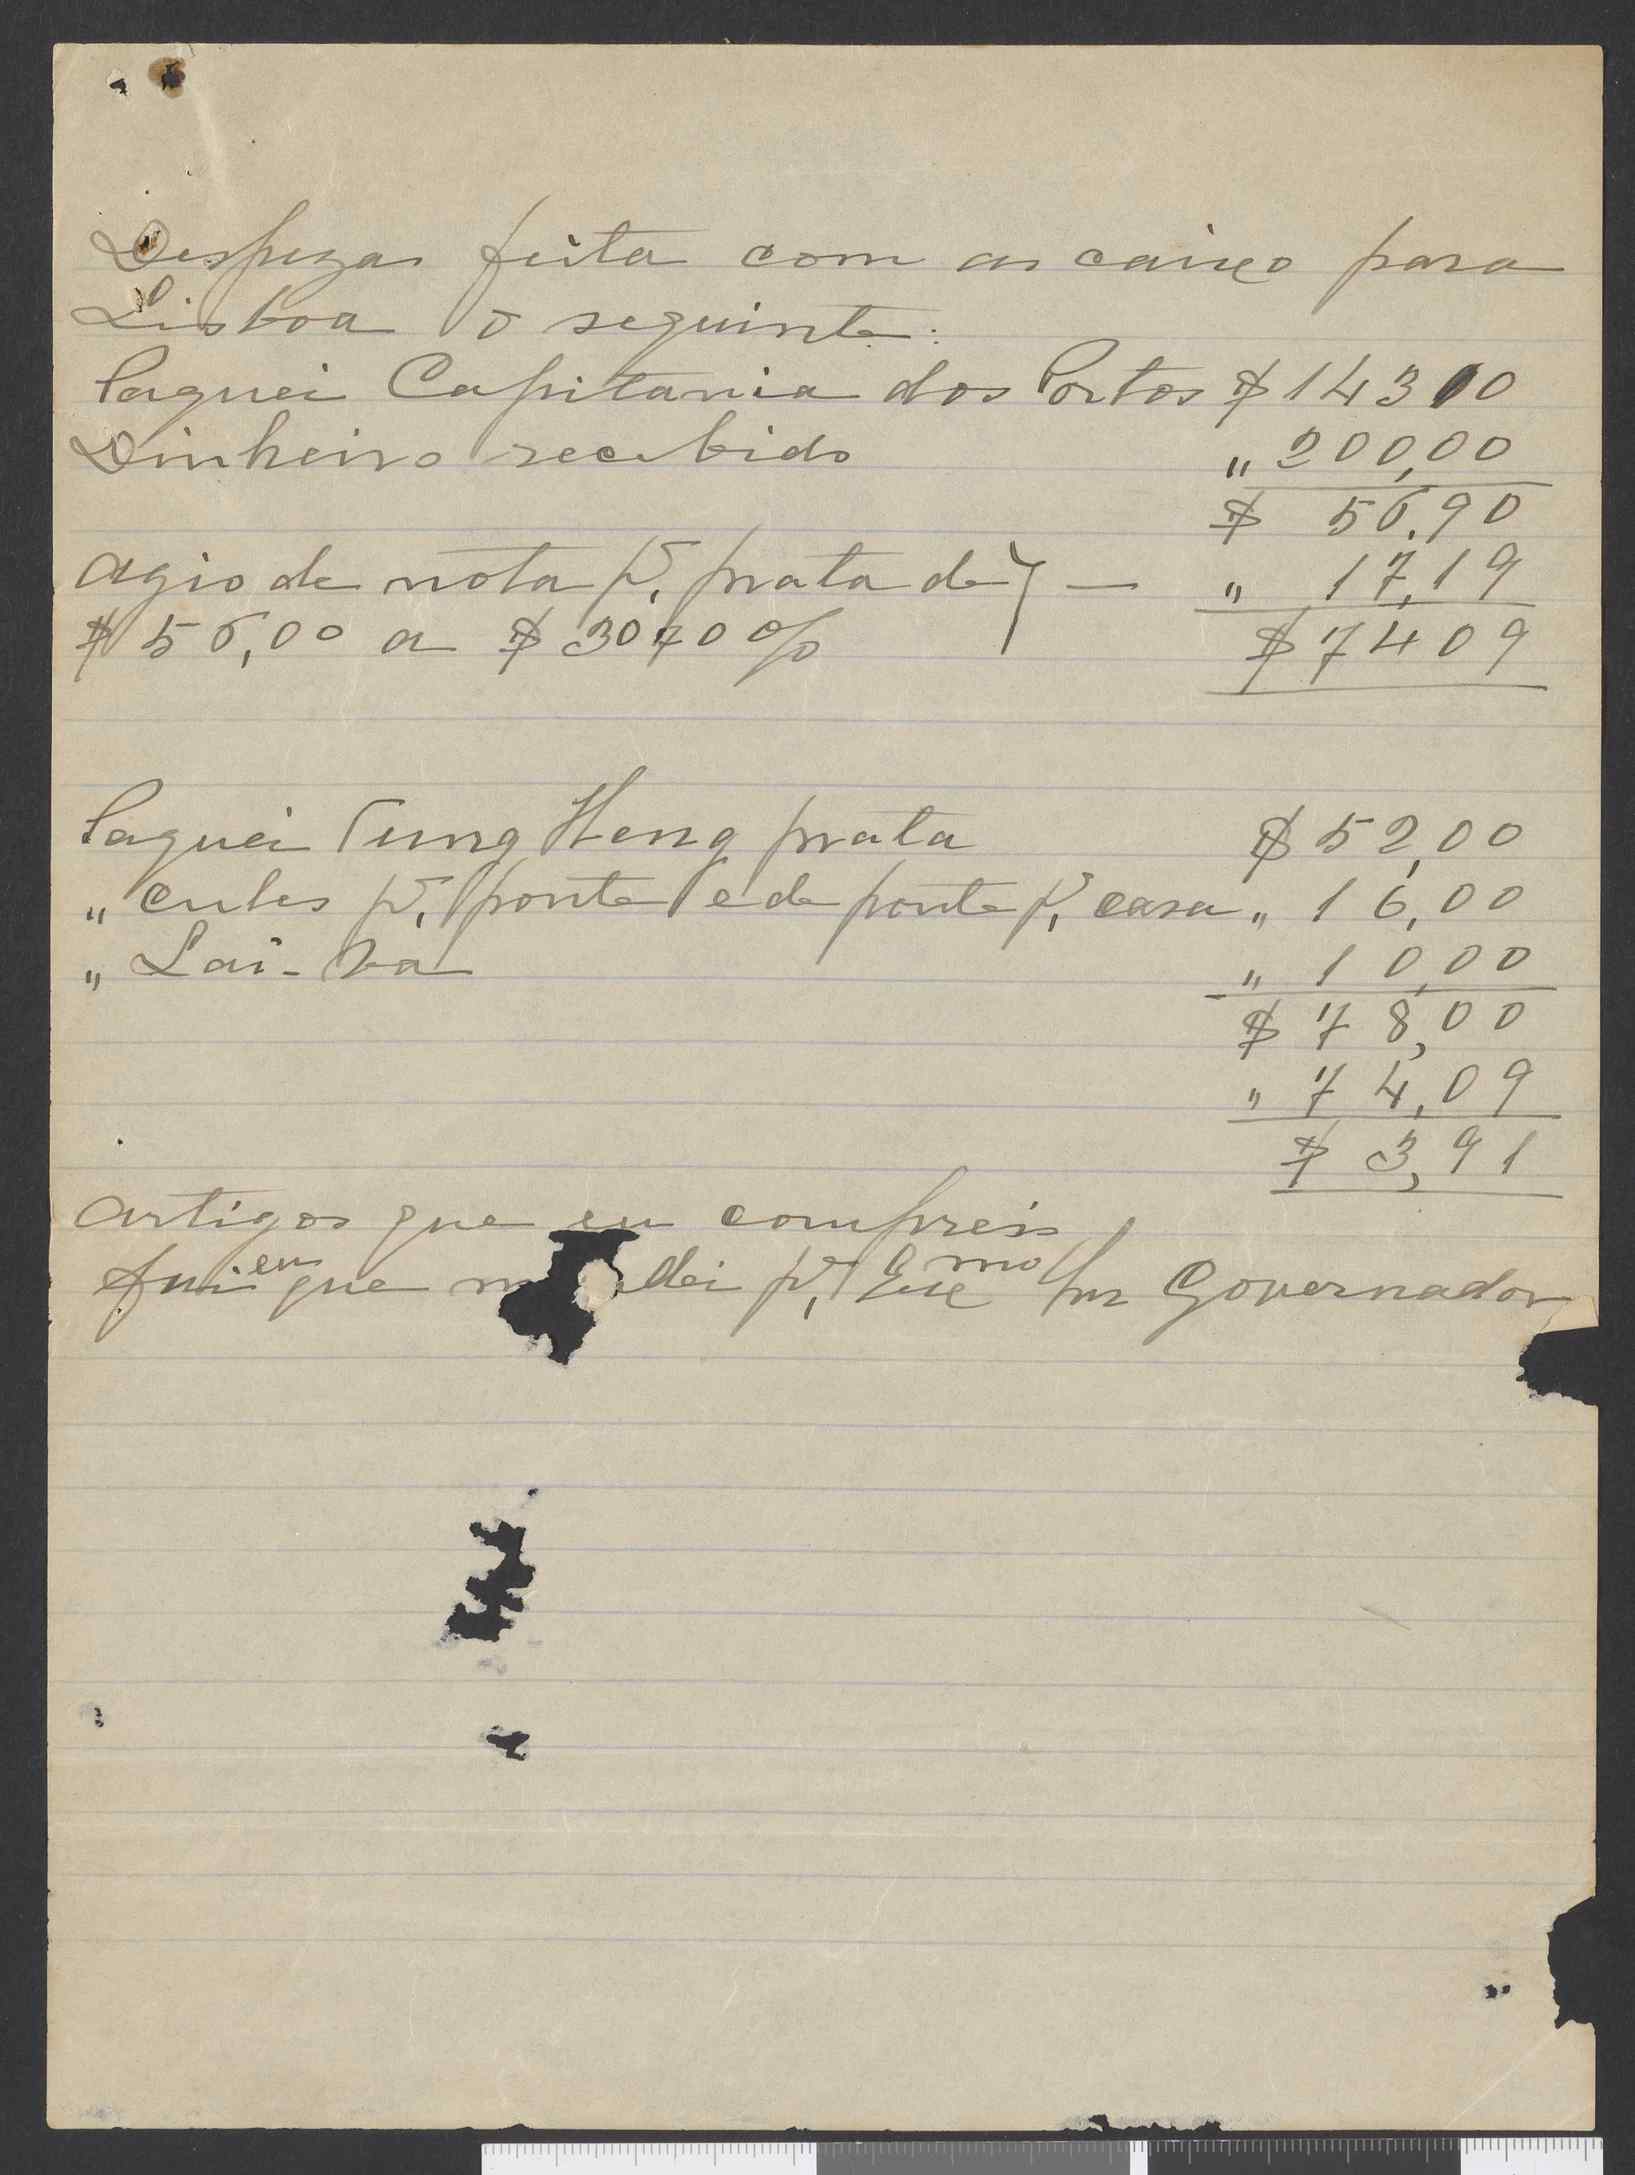 Despezas feita com as caixo para
Lisboa o seguinte:
Paguei Capitania dos Portos $ 143 10
Dinheiro recebido " 200,00
$ 56,90
Agio de nota p.ª prata de } — " 17,19
$ 56,00 a $ 30 70 % $ 74 09
Paguei Tung Heng prata $ 52,00
" cules p.ª ponte e de ponte p.ª casa " 16,00
" Lai-Va " 10,00
$ 78,00
" 74,09
$ 3,91
Artigos que eu compreis
fui eu que m dei p.ª Exc mo Snr Governador